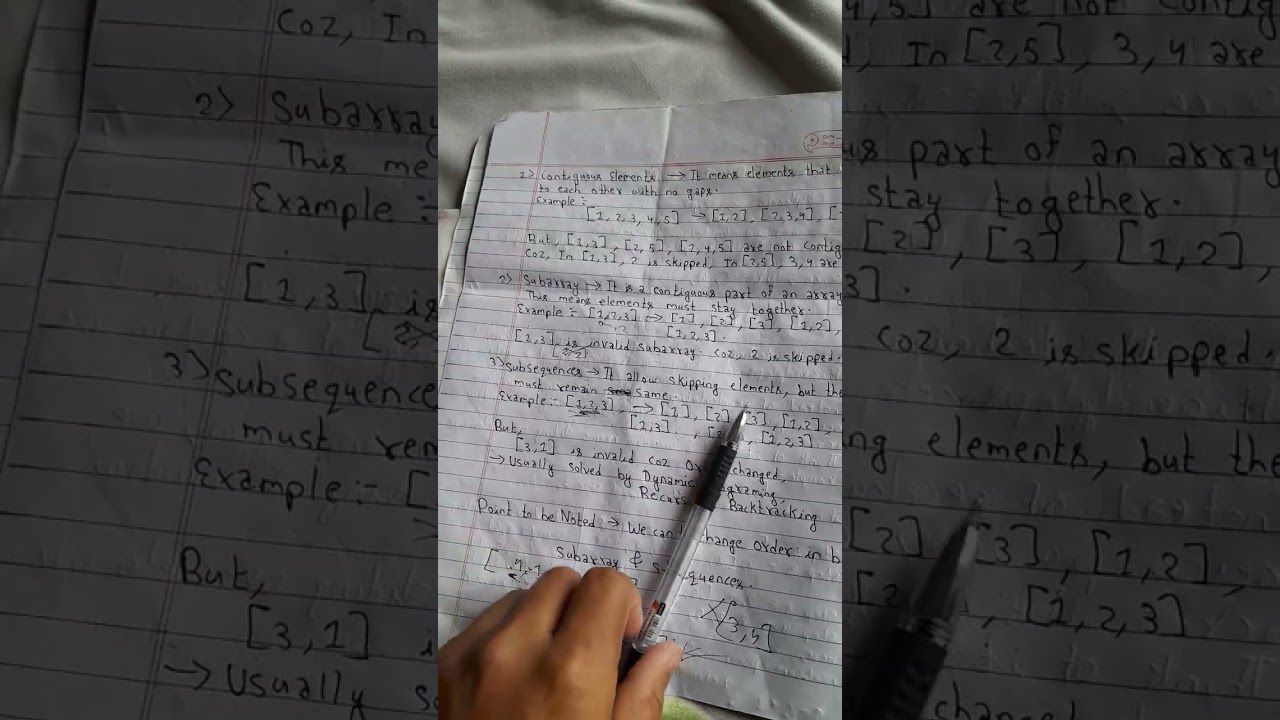 1> Contiguous Elements → It means elements that
to each other with no gaps.
Example :-
[1, 2, 3, 4, 5] → [1,2], [2,3,4], [
But, [1,3], [2,5], [2,4,5] are not contig
coz, In [1,3], 2 is skipped, In [2,5], 3,4 are
2> Subarray → It is a contiguous part of an array
This means elements must stay together.
Example :- [1,2,3] → [1], [2], [3], [1,2],
[1,2,3].
[1,3] is invalid subarray. coz, 2 is skipped.
3> Subsequences → It allow skipping elements, but the
must remain same.
Example:- [1,2,3] → [1], [2], [3], [1,2],
[1,3], [2, [1,2,3]
But,
[3,1] is invalid coz changed,
→ Usually solved by Dynamic
Backtracking
Point to be Noted → We can change order in b
Subarray &
[3,5]